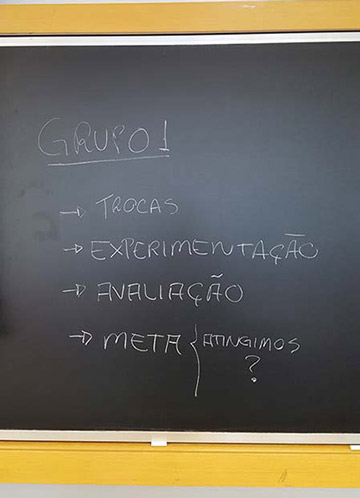 GRUPO 1
→ TROCAS
→ EXPERIMENTAÇÃO
→ AVALIAÇÃO
→ META { ATINGIMOS
?